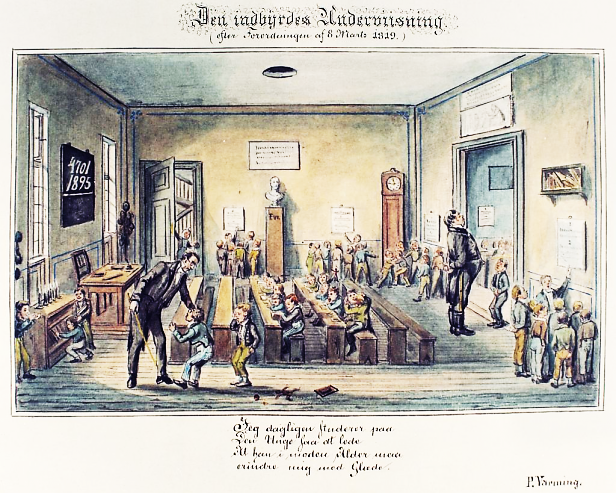 Den indbyrdes Underviisning
(efter Forordningen af 8 Marts 1819.)
4701
1895
Jeg dagligen studerer paa
Den Unge saa at lede
At han i moden Alder maa
erindre mig med Glæde.
P. Værning.